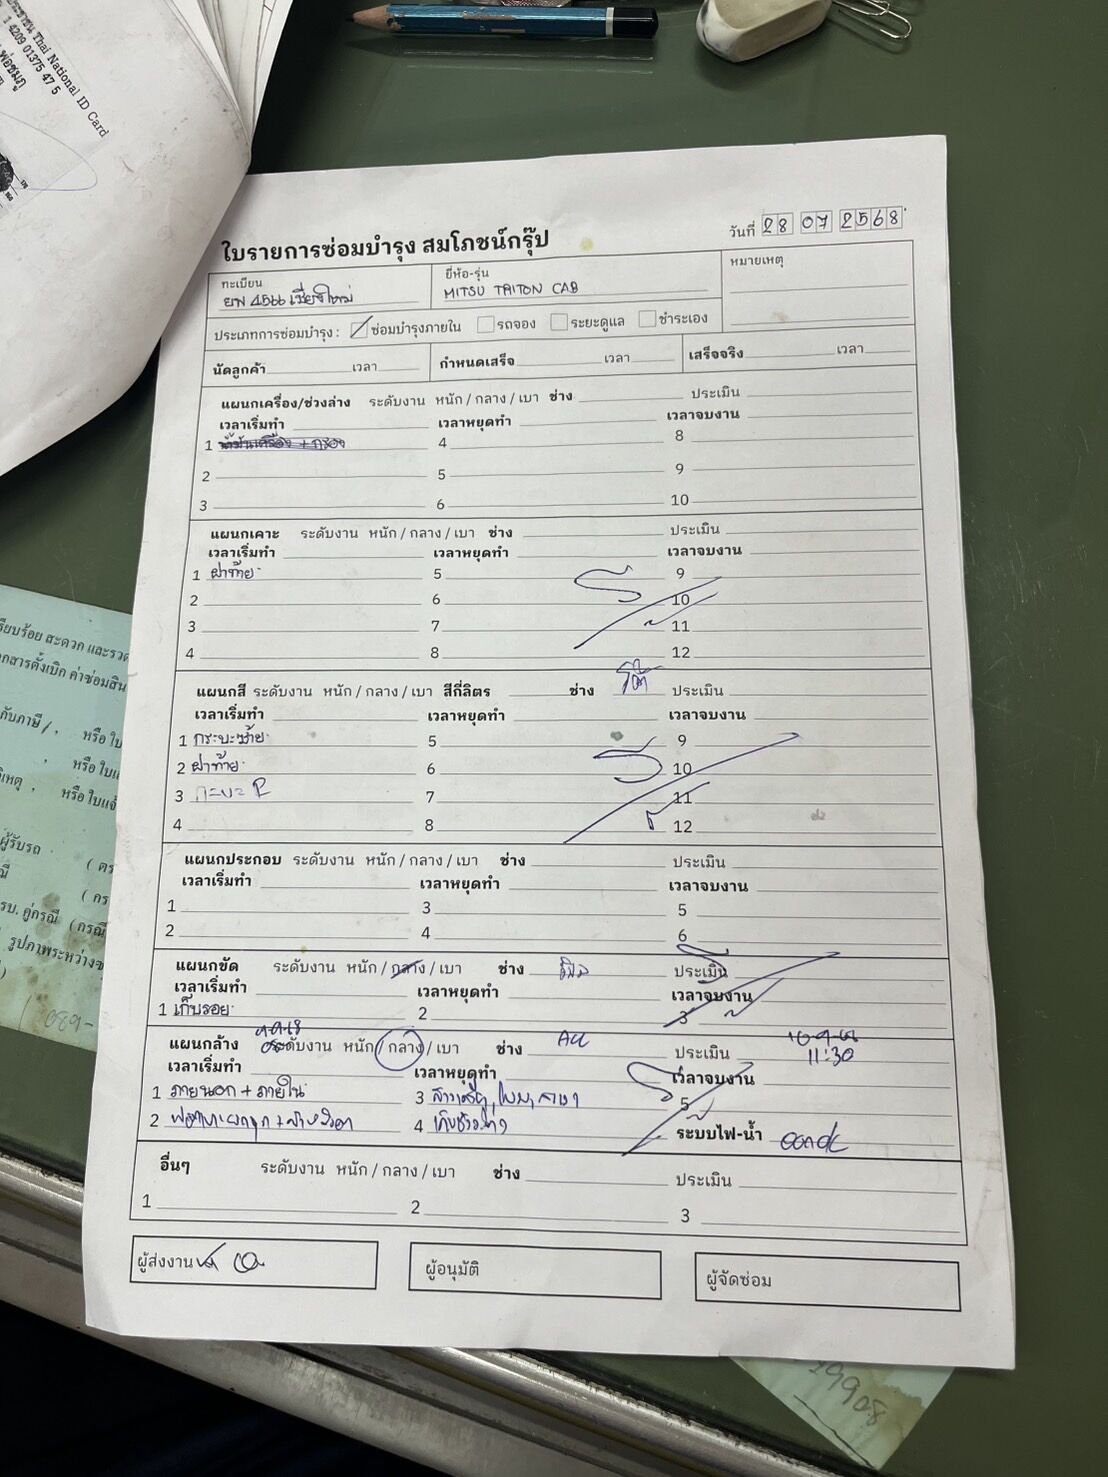 ประชาชน Thai National ID Card
1 4209 01375 47 5
ใบรายการซ่อมบำรุง สมโภชน์กรุ๊ป
วันที่ 28 07 2568
ทะเบียน
4566 เชียงใหม่
ยี่ห้อ-รุ่น
MITSU TRITON CAB
หมายเหตุ
ประเภทการซ่อมบำรุง : ซ่อมบำรุงภายใน รถจอง ระยะดูแล ชำระเอง
นัดลูกค้า เวลา กำหนดเสร็จ เวลา เสร็จจริง เวลา
แผนกเครื่อง/ช่วงล่าง ระดับงาน หนัก / กลาง / เบา ช่าง ประเมิน
เวลาเริ่มทำ เวลาหยุดทำ เวลาจบงาน
1 น้ำมันเครื่อง + กรอง 4 8
2 5 9
3 6 10
แผนกเคาะ ระดับงาน หนัก / กลาง / เบา ช่าง ประเมิน
เวลาเริ่มทำ เวลาหยุดทำ เวลาจบงาน
1 ฝาท้าย 5 9
2 6 10
3 7 11
4 8 12
แผนกสี ระดับงาน หนัก / กลาง / เบา สีกี่ลิตร ช่าง ประเมิน
เวลาเริ่มทำ เวลาหยุดทำ เวลาจบงาน
1 กระบะซ้าย 5 9
2 ฝาท้าย 6 10
3 7 11
4 8 12
แผนกประกอบ ระดับงาน หนัก / กลาง / เบา ช่าง ประเมิน
เวลาเริ่มทำ เวลาหยุดทำ เวลาจบงาน
1 3 5
2 4 6
แผนกขัด ระดับงาน หนัก / กลาง / เบา ช่าง ประเมิน
เวลาเริ่มทำ เวลาหยุดทำ เวลาจบงาน
1 เก็บรอย 2 3
แผนกล้าง ระดับงาน หนัก / กลาง / เบา ช่าง ประเมิน 11:30
เวลาเริ่มทำ เวลาหยุดทำ เวลาจบงาน
1 ภายนอก + ภายใน 3 5
2 4 ระบบไฟ-น้ำ
อื่นๆ ระดับงาน หนัก / กลาง / เบา ช่าง ประเมิน
1 2 3
ผู้ส่งงาน ผู้อนุมัติ ผู้จัดซ่อม
19908